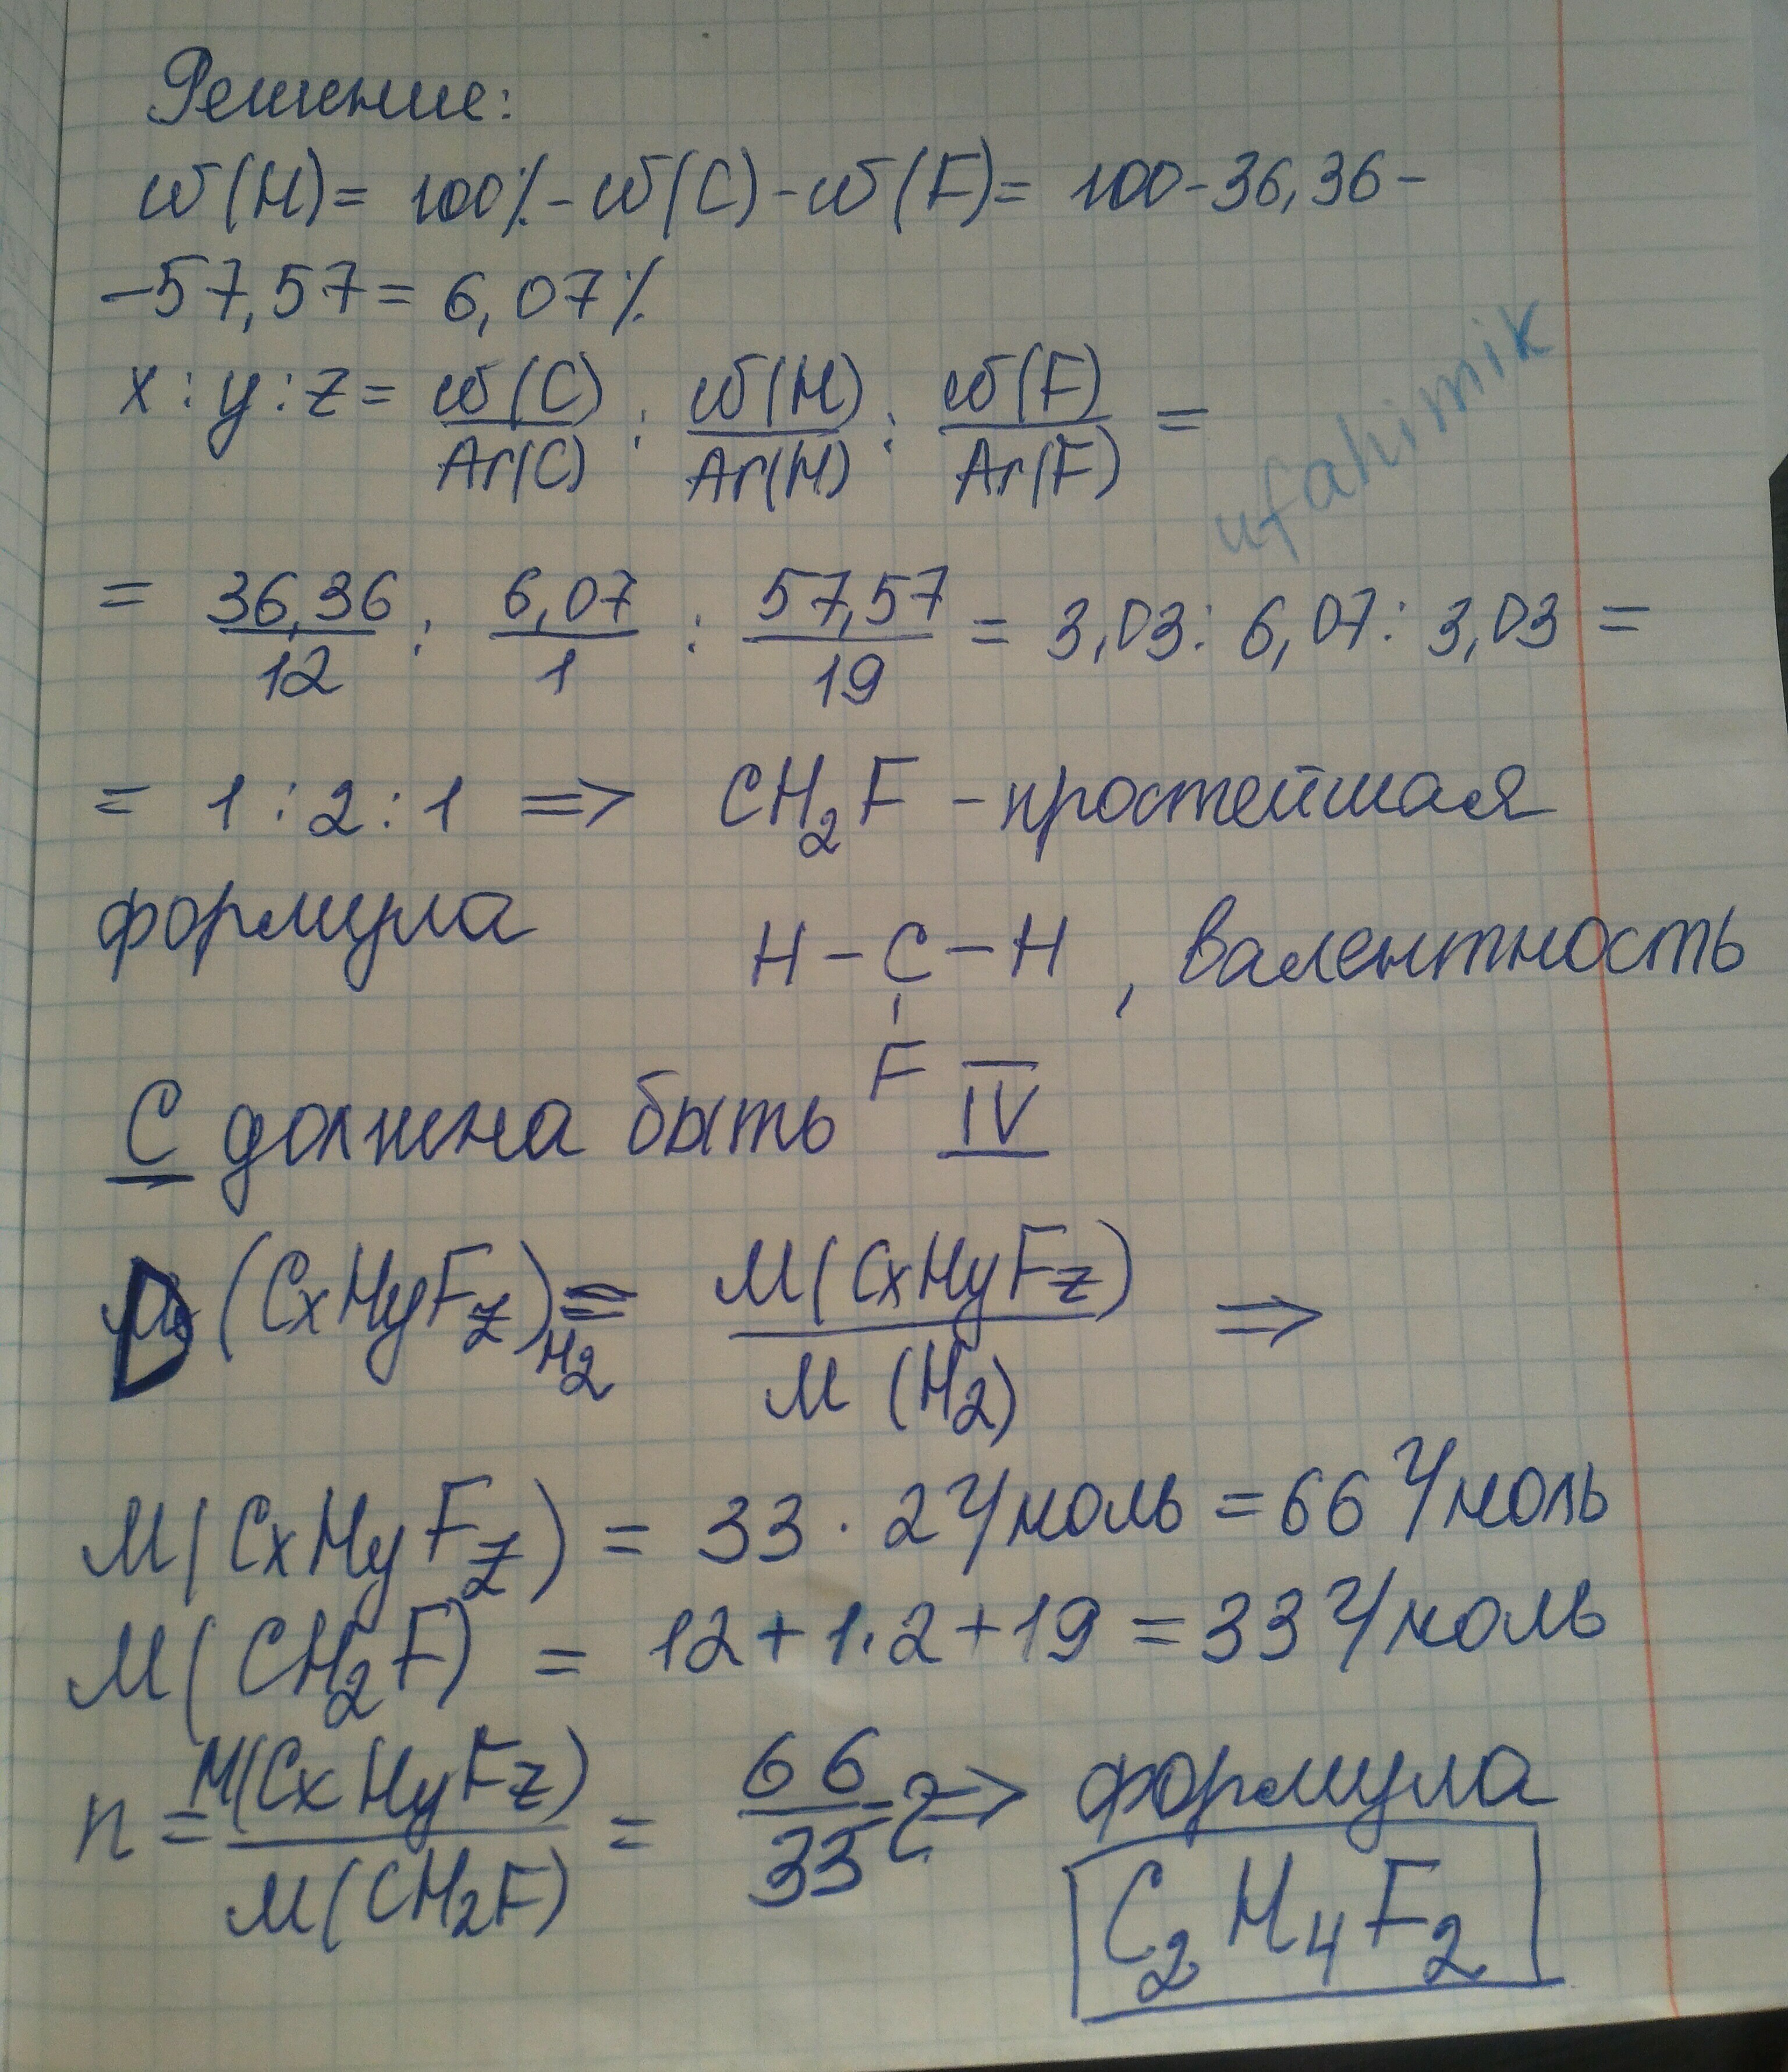 Решение:
ω(H) = 100% - ω(C) - ω(F) = 100 - 36,36 -
- 57,57 = 6,07%
x : y : z = ω(C)/Ar(C) : ω(H)/Ar(H) : ω(F)/Ar(F) =
ufahimik
= 36,36/12 : 6,07/1 : 57,57/19 = 3,03 : 6,07 : 3,03 =
= 1 : 2 : 1 => CH2F - простейшая
формула H - C - H , валентность
F
C должна быть IV
D(CxHyFz)H2 = M(CxHyFz)/M(H2) =>
M(CxHyFz) = 33 · 2 г/моль = 66 г/моль
M(CH2F) = 12 + 1·2 + 19 = 33 г/моль
n = M(CxHyFz)/M(CH2F) = 66/33 = 2 => формула
C2H4F2